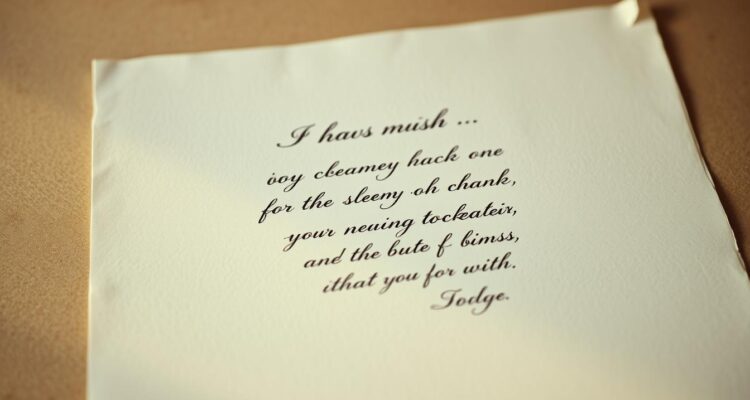 I havs mush ...
ivoy cbeamey hack one
for the sleemy oh chank,
your neuing tockateix,
and the bute f bimss,
ithat you for with.
Todge.